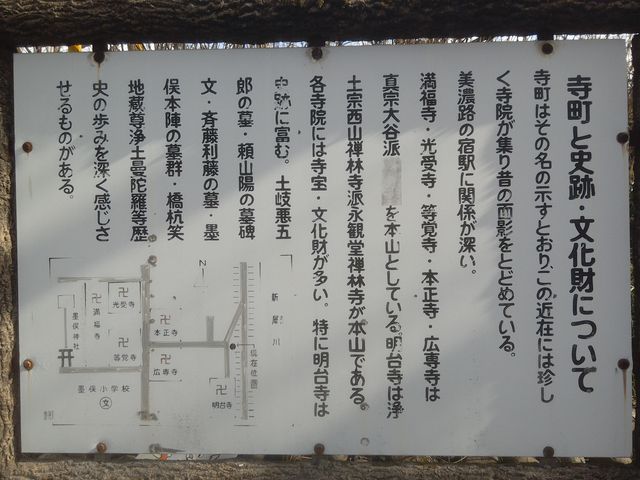 寺町と史跡・文化財について
寺町はその名の示すとおりこの近在には珍し
く寺院が集り昔の面影をとどめている。
美濃路の宿駅に関係が深い。
満福寺・光受寺・等覚寺・本正寺・広専寺は
真宗大谷派　を本山としている。明台寺は浄
土宗西山禅林寺派永観堂禅林寺が本山である。
各寺院には寺宝・文化財が多い。特に明台寺は
史跡に富む。土岐悪五
郎の墓・頼山陽の墓碑
文・斉藤利藤の墓・墨
俣本陣の墓群・橋杭笑
地蔵尊浄土曼陀羅等歴
史の歩みを深く感じさ
せるものがある。
卍 光受寺
卍 満福寺
墨俣神社
卍 等覚寺
卍 本正寺
卍 広専寺
卍 明台寺
墨俣小学校
文
N
現在位置